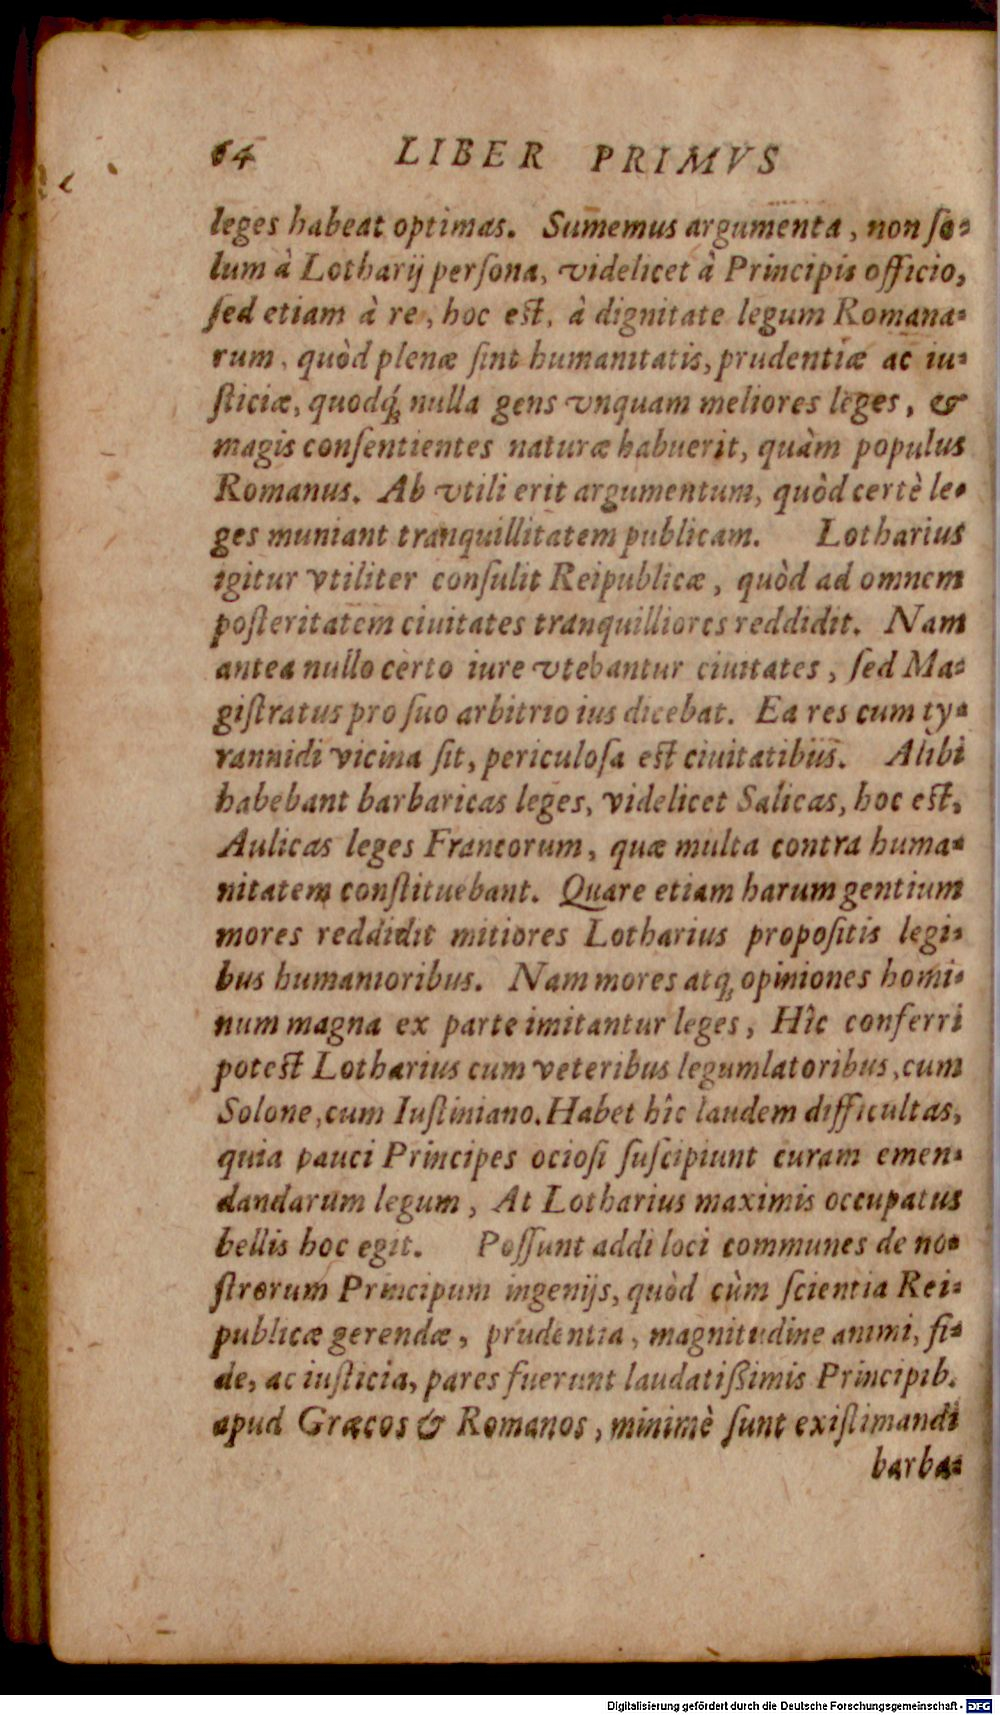 64 LIBER PRIMVS
leges habeat optimas. Sumemus argumenta, non ſo⸗
lum à Lotharij perſona, videlicet à Principis officio,
ſed etiam à re, hoc eſt, à dignitate legum Romana⸗
rum, quòd plenæ ſint humanitatis, prudentiæ ac iu⸗
ſticiæ, quodq́; nulla gens vnquam meliores leges, &
magis conſentientes naturæ habuerit, quàm populus
Romanus. Ab vtili erit argumentum, quòd certè le⸗
ges muniant tranquillitatem publicam. Lotharius
igitur vtiliter conſulit Reipublicæ, quòd ad omnem
poſteritatem ciuitates tranquilliores reddidit. Nam
antea nullo certo iure vtebantur ciuitates, ſed Ma⸗
giſtratus pro ſuo arbitrio ius dicebat. Ea res cum ty⸗
rannidi vicina ſit, periculoſa eſt ciuitatibus. Alibi
habebant barbaricas leges, videlicet Salicas, hoc eſt,
Aulicas leges Francorum, quæ multa contra huma⸗
nitatem conſtituebant. Quare etiam harum gentium
mores reddidit mitiores Lotharius propoſitis legi⸗
bus humanioribus. Nam mores atq; opiniones homi⸗
num magna ex parte imitantur leges, Hîc conferri
poteſt Lotharius cum veteribus legumlatoribus, cum
Solone, cum Iuſtiniano. Habet hîc laudem difficultas,
quia pauci Principes ocioſi ſuſcipiunt curam emen⸗
dandarum legum, At Lotharius maximis occupatus
bellis hoc egit. Poſſunt addi loci communes de no⸗
ſtrorum Principum ingenijs, quòd cùm ſcientia Rei⸗
publicæ gerendæ, prudentia, magnitudine animi, fi⸗
de, ac iuſticia, pares fuerunt laudatißimis Principib.
apud Græcos & Romanos, minimè ſunt exiſtimandi
barba⸗
Digitalisierung gefördert durch die Deutsche Forschungsgemeinschaft - DFG